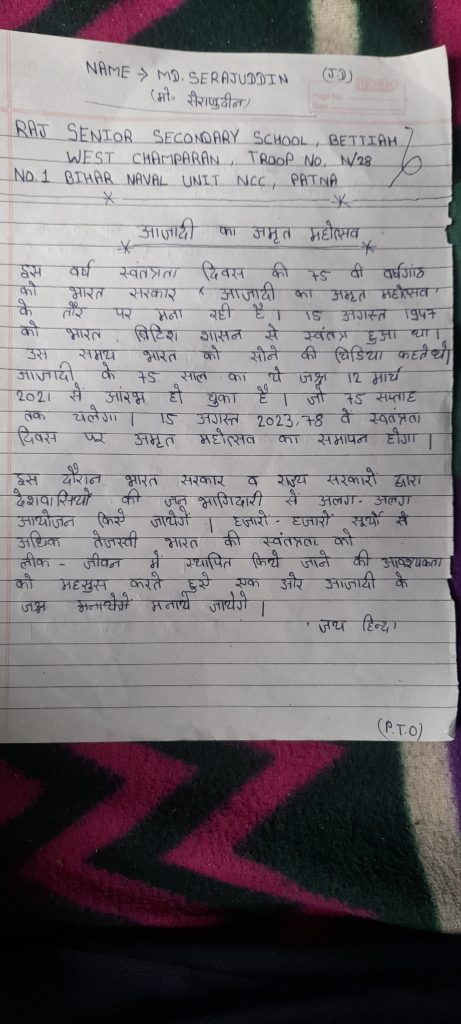 NAME → MD. SERAJUDDIN (JD)
(मो॰ सेराजुदीन)
RAJ SENIOR SECONDARY SCHOOL, BETTIAH
WEST CHAMPARAN, TROOP NO, N/28
NO. 1 BIHAR NAVAL UNIT NCC, PATNA
आजादी का अमृत महोत्सव
इस वर्ष स्वतंत्रता दिवस की 75 वी वर्षगांठ
को भारत सरकार 'आजादी का अमृत महोत्सव'
के तौर पर मना रही है। 15 अगस्त 1947
को भारत, ब्रिटिश शासन से स्वतंत्र हुआ था।
उस समय भारत को सोने की चिडिया कहते थे।
आजादी के 75 साल का ये जश्न 12 मार्च
2021 से आंरभ हो चुका है। जो 75 सप्ताह
तक चलेगा। 15 अगस्त 2023, 78 वे स्वतंत्रता
दिवस पर अमृत महोत्सव का समापन होगा।
इस दौरान भारत सरकार व राज्य सरकारों द्वारा
देशवासियों की जन भागिदारी से अलग-अलग
आयोजन किये जायेगें। हजारो-हजारों सूर्यो से
अधिक तेजस्वी भारत की स्वंतत्रता को
लोक-जीवन में स्थापित किये जाने की आवश्यकता
को महसुस करते हुये एक ओर आजादी के
जश्न मनायेगें मनाये जायेगे।
'जय हिन्द'
(P.T.O)